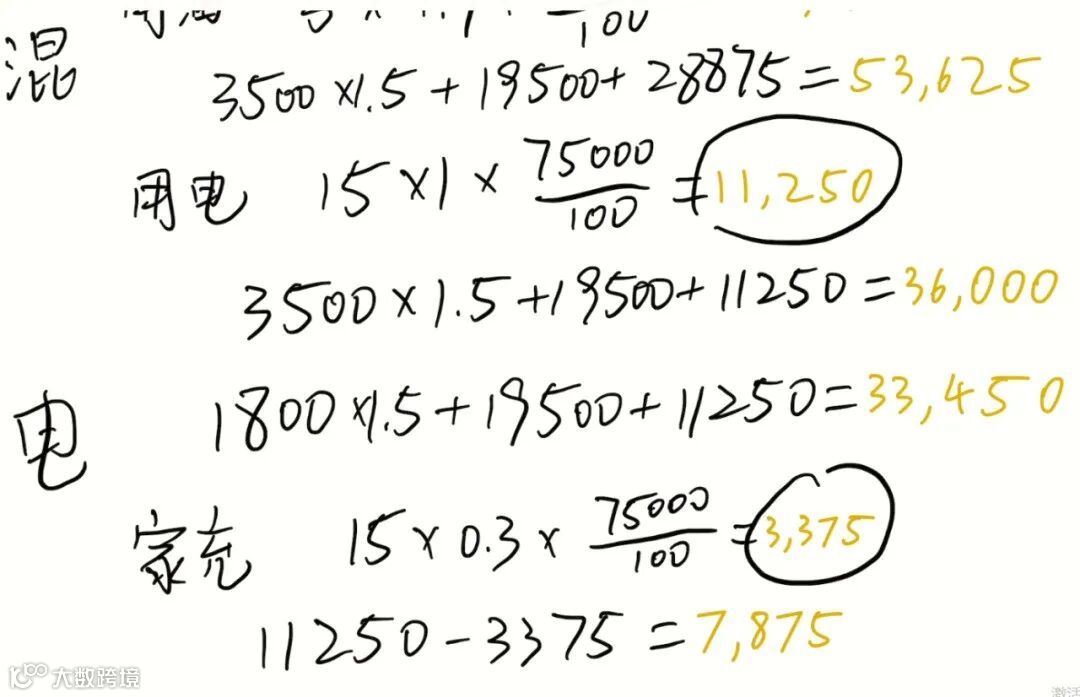 混
3500×1.5+19500+28875=53,625
用电 15×1×75000/100=11,250
3500×1.5+19500+11250=36,000
电 1800×1.5+19500+11250=33,450
家充 15×0.3×75000/100=3,375
11250-3375=7,875
大数跨境